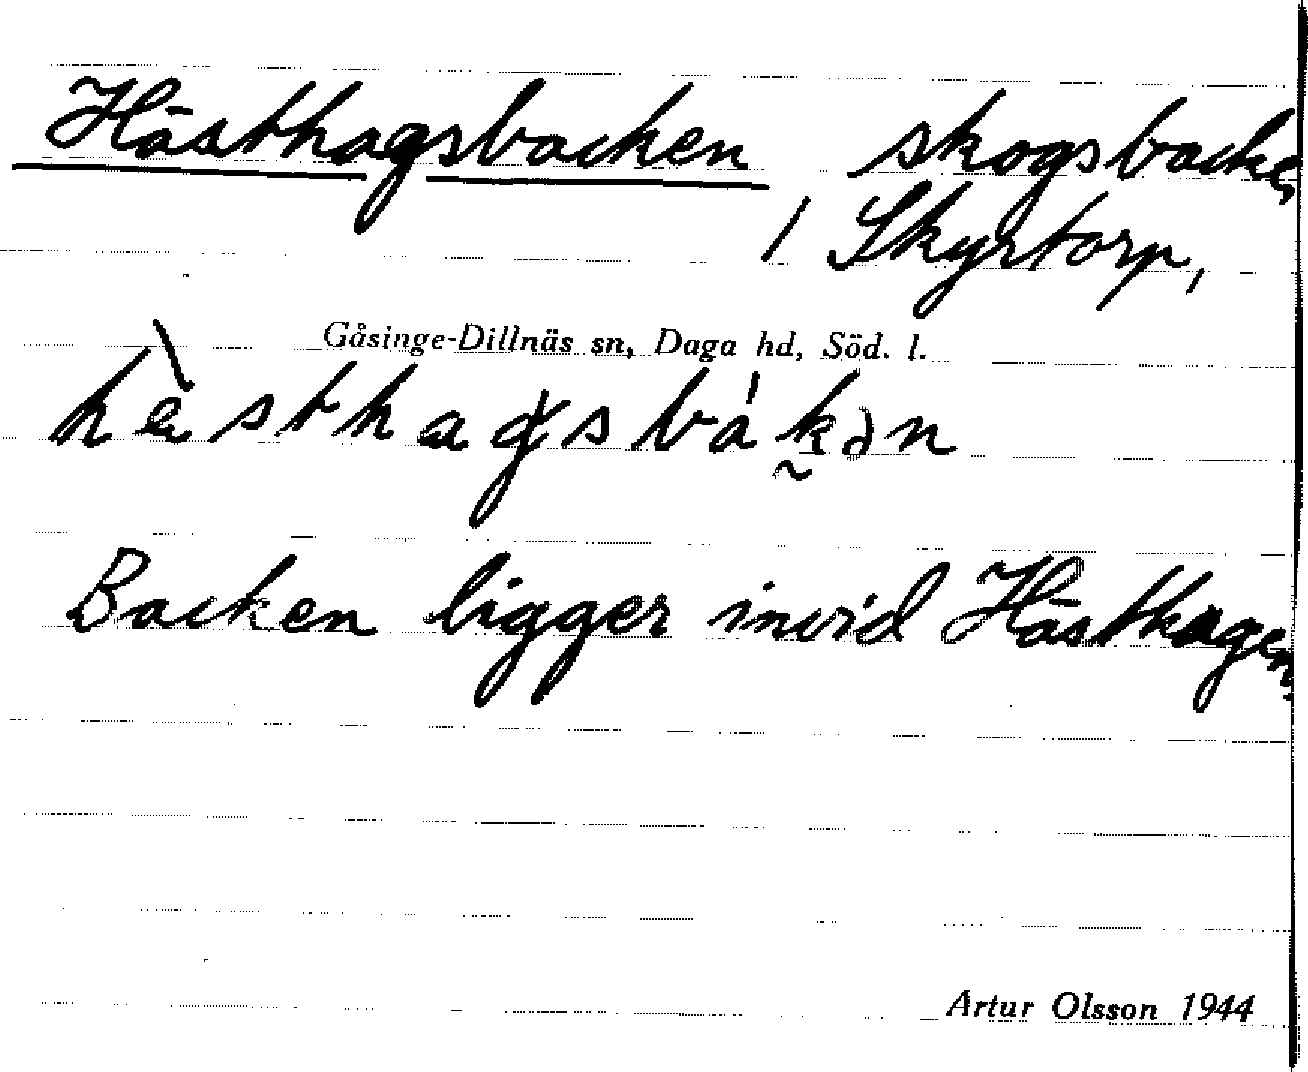 Hästhagsbacken, skogsbacke,
/ Skyrtorp,
Gåsinge-Dillnäs sn, Daga hd, Söd. l.
Backen ligger invid Hästhagen.
Artur Olsson 1944